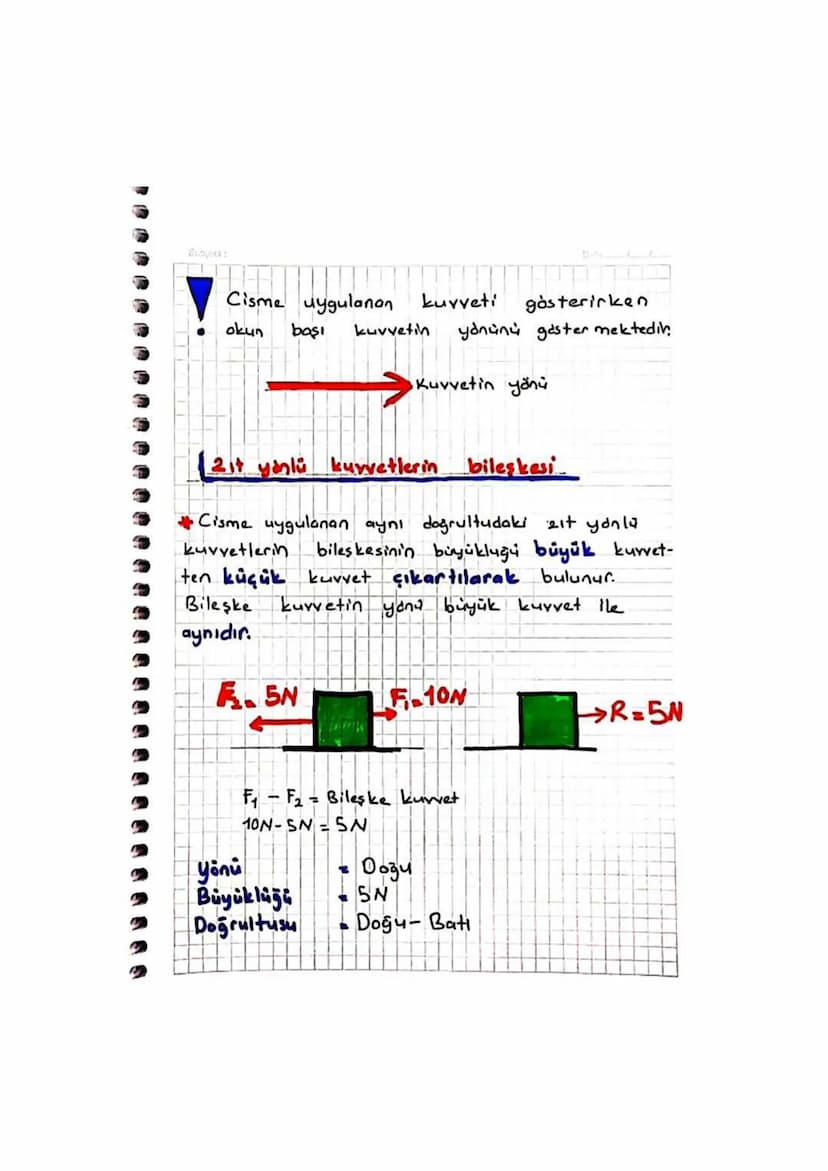 Cisme uygulanan kuvveti gösterirken
okun başı kuvvetin yönünü göstermektedir.
Kuvvetin yönü
Zıt yönlü kuvvetlerin bileşkesi
* Cisme uygulanan aynı doğrultudaki zıt yönlü
kuvvetlerin bileşkesinin büyüklüğü büyük kuvvet-
ten küçük kuvvet çıkartılarak bulunur.
Bileşke kuvvetin yönü büyük kuvvet ile
aynıdır.
F₂ = 5N F₁ = 10N R = 5N
F₁ - F₂ = Bileşke kuvvet
10N - 5N = 5N
Yönü = Doğu
Büyüklüğü = 5N
Doğrultusu = Doğu - Batı